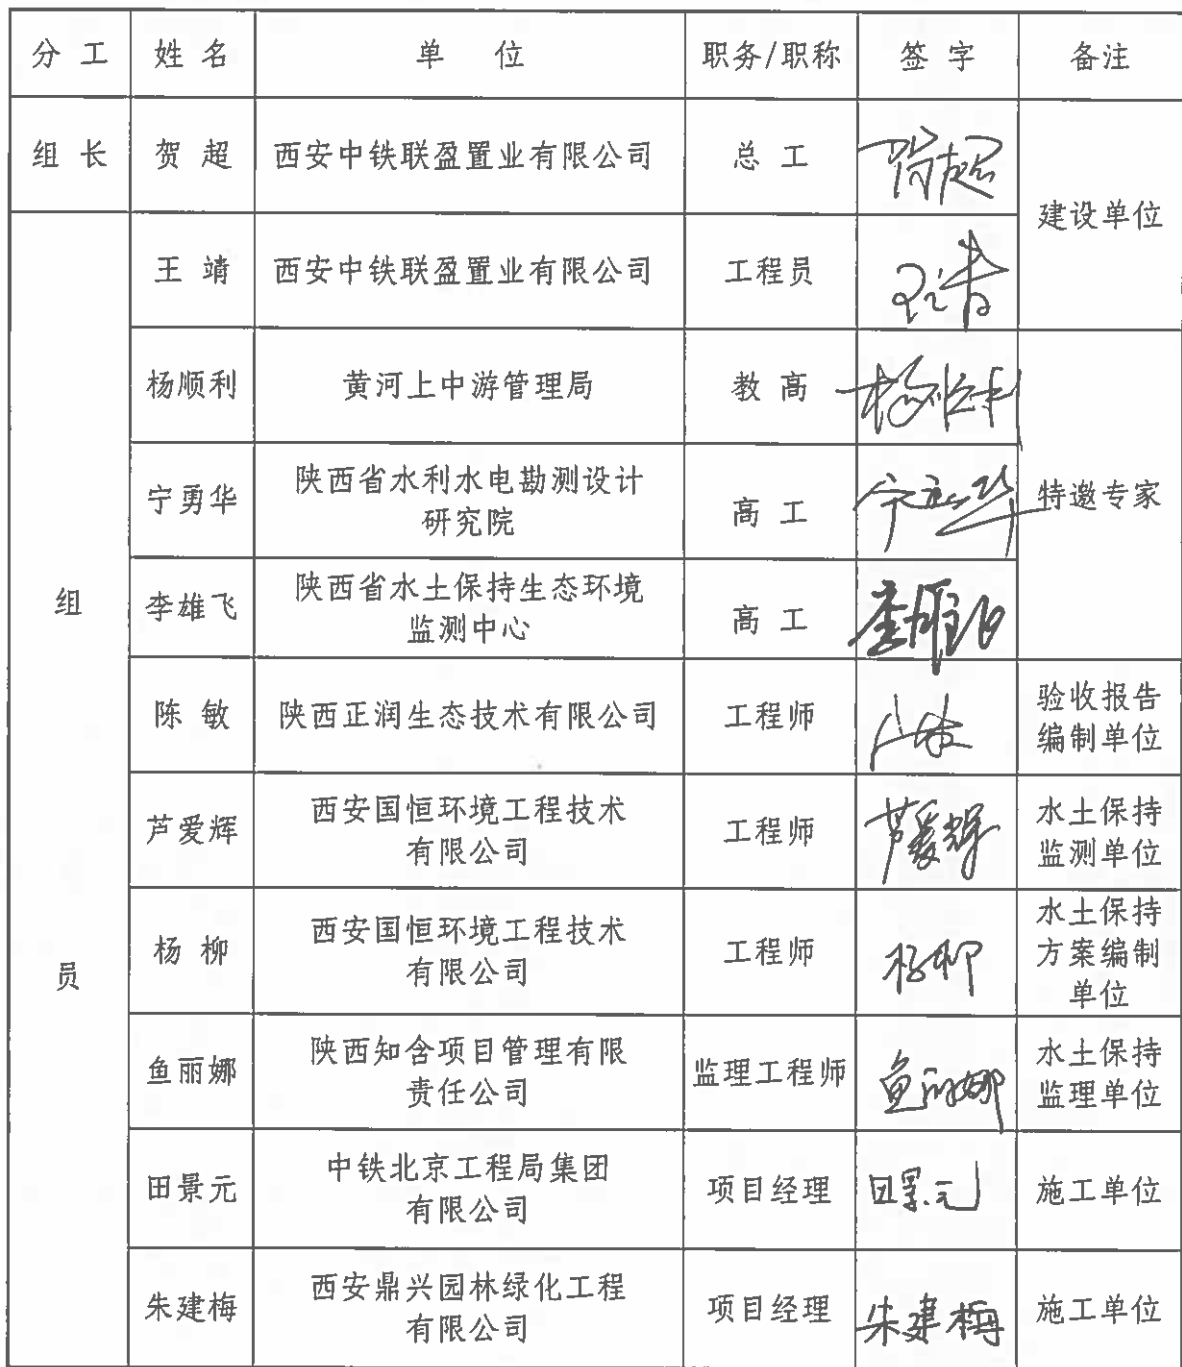 分工 姓名 单位 职务/职称 签字 备注
组长 贺超 西安中铁联盈置业有限公司 总工 贺超 建设单位
组员
王靖 西安中铁联盈置业有限公司 工程员 王靖
杨顺利 黄河上中游管理局 教高 杨顺利 特邀专家
宁勇华 陕西省水利水电勘测设计
研究院 高工 宁勇华
李雄飞 陕西省水土保持生态环境
监测中心 高工 李雄飞
陈敏 陕西正润生态技术有限公司 工程师 验收报告
编制单位
芦爱辉 西安国恒环境工程技术
有限公司 工程师 芦爱辉 水土保持
监测单位
杨柳 西安国恒环境工程技术
有限公司 工程师 杨柳 水土保持
方案编制
单位
鱼丽娜 陕西知含项目管理有限
责任公司 监理工程师 鱼丽娜 水土保持
监理单位
田景元 中铁北京工程局集团
有限公司 项目经理 田景元 施工单位
朱建梅 西安鼎兴园林绿化工程
有限公司 项目经理 朱建梅 施工单位